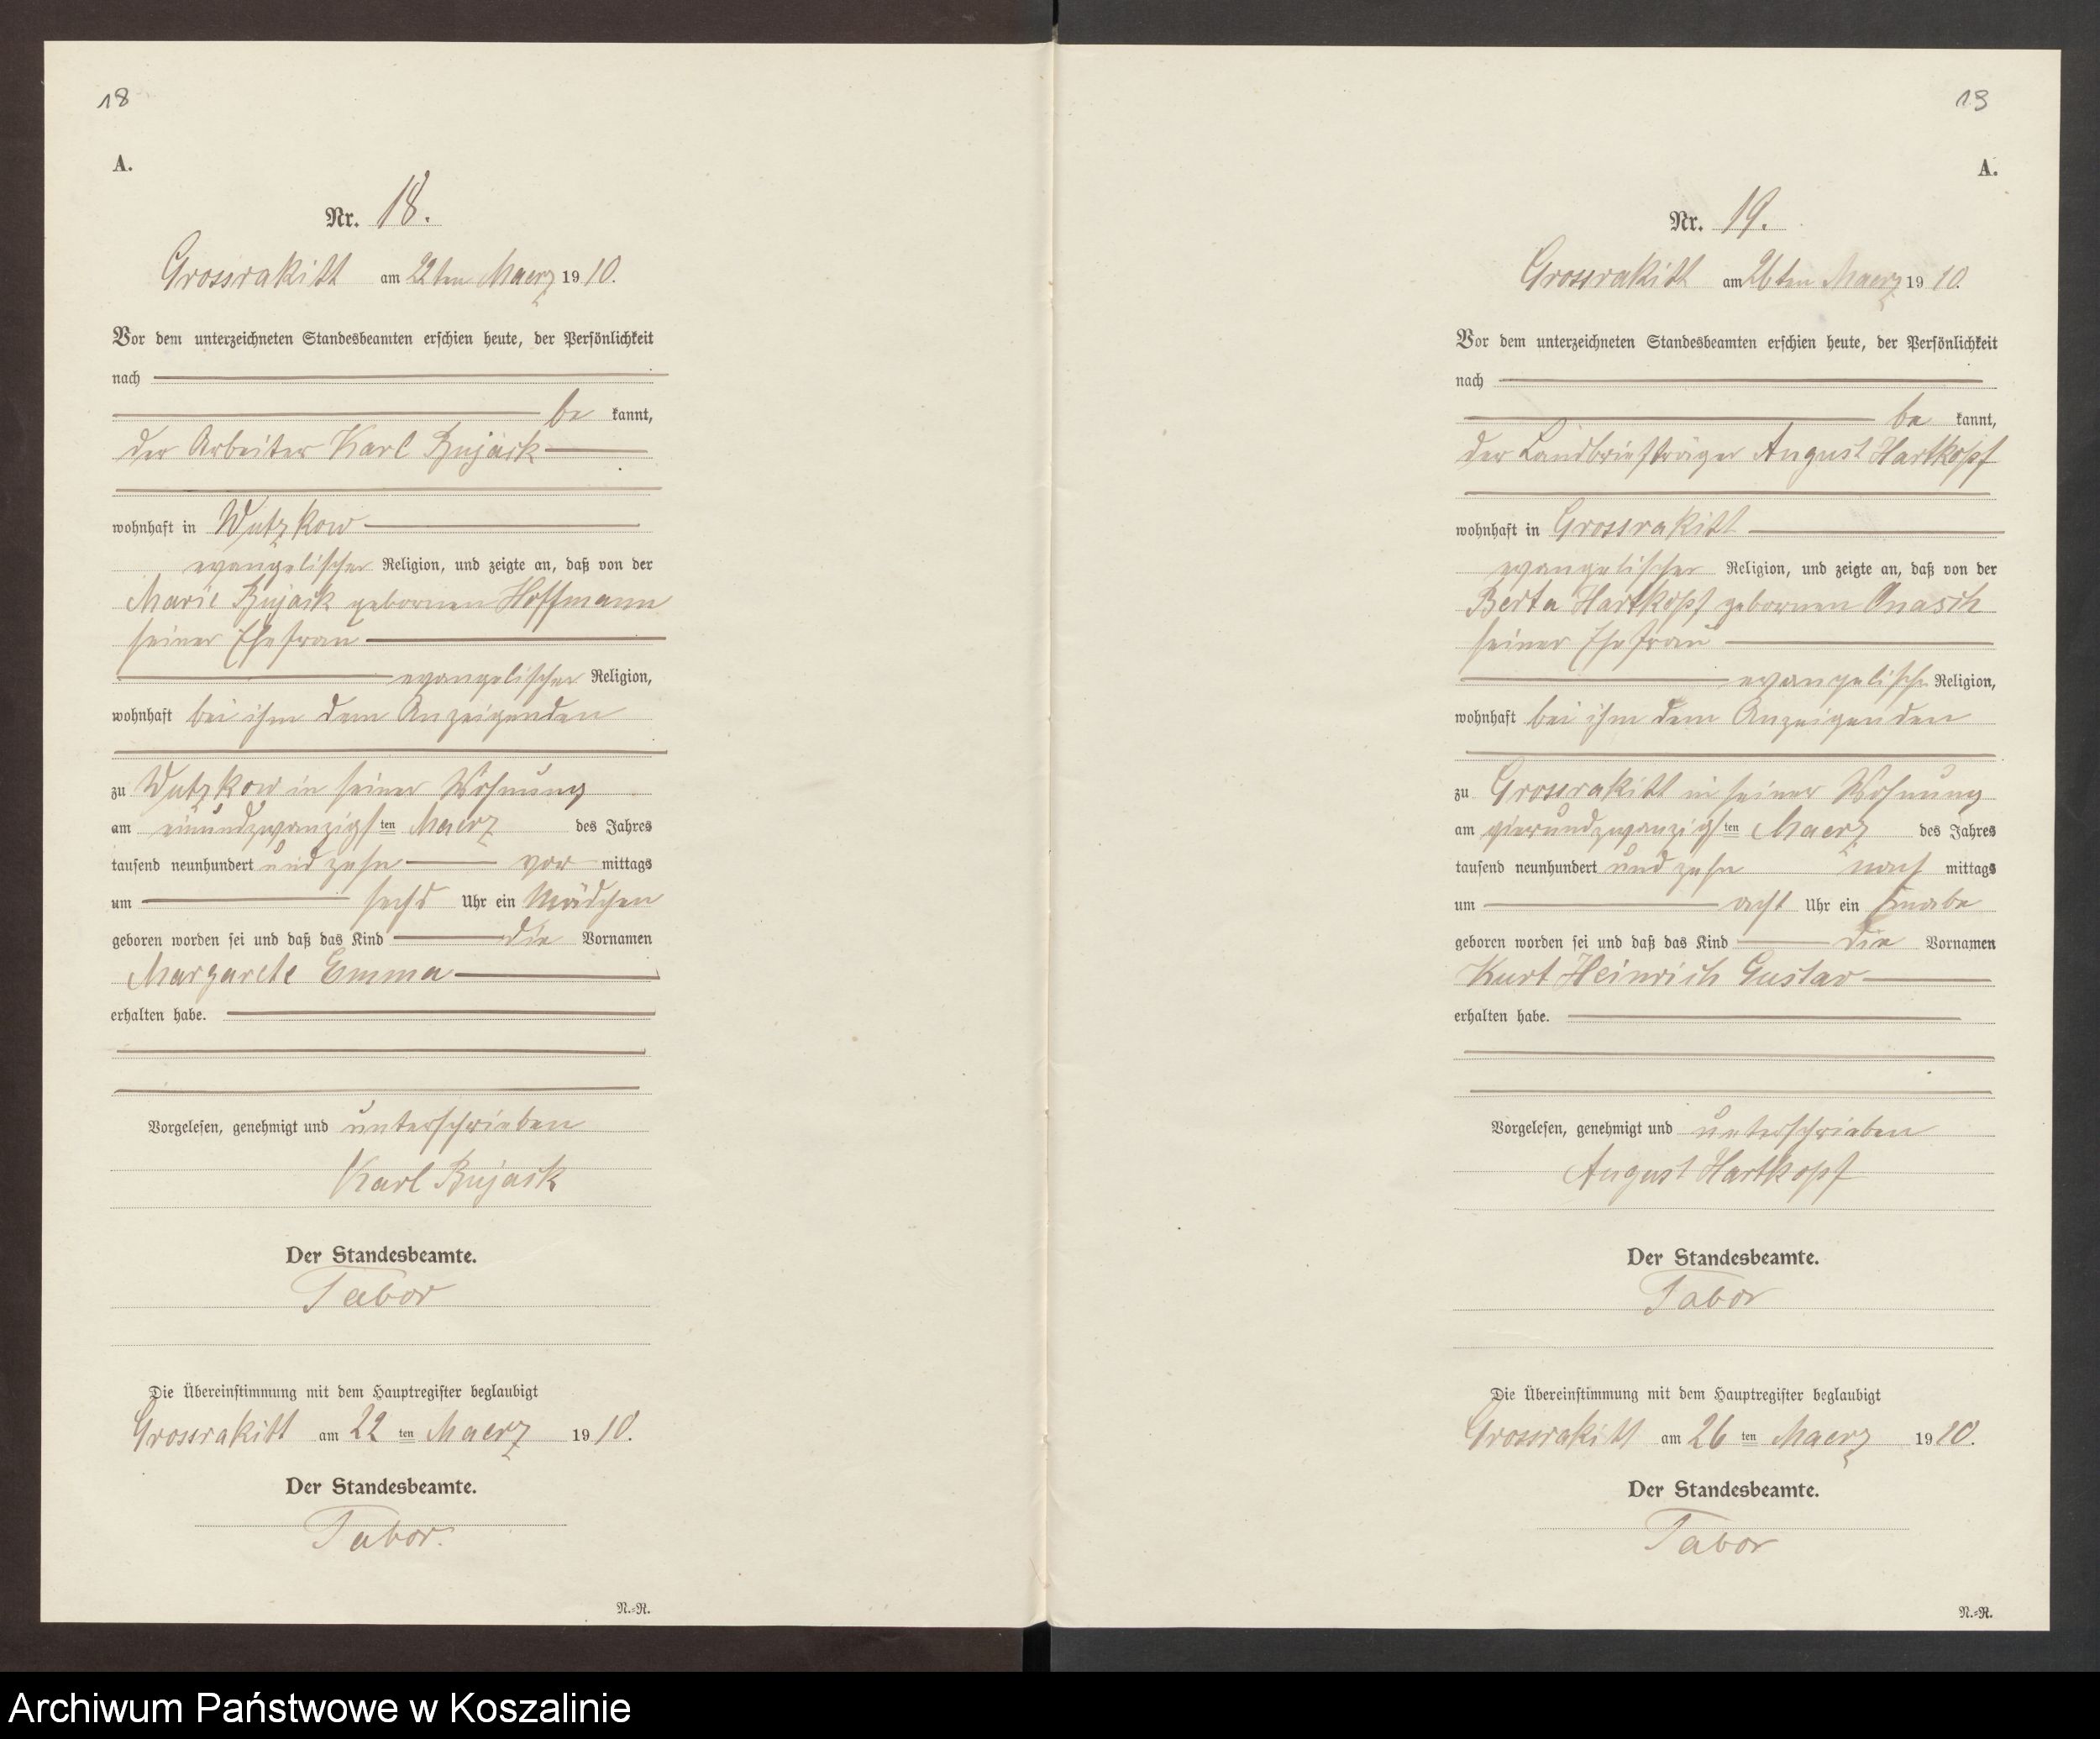 18
A.
Nr. 18.
Grossrakitt am 22ten Maerz 1910.
Vor dem unterzeichneten Standesbeamten erschien heute, der Persönlichkeit
nach
be kannt,
der Arbeiter Karl Bujack
wohnhaft in Wutzkow
evangelischer Religion, und zeigte an, daß von der
Marie Bujack gebornen Hoffmann
seiner Ehefrau
evangelischer Religion,
wohnhaft bei ihm dem Anzeigenden
zu Wutzkow in seiner Wohnung
am einundzwanzigsten Maerz des Jahres
tausend neunhundert und zehn vor mittags
um sechs Uhr ein Mädchen
geboren worden sei und daß das Kind die Vornamen
Margarete Emma
erhalten habe.
Vorgelesen, genehmigt und unterschrieben
Karl Bujack
Der Standesbeamte.
Tabor
Die Übereinstimmung mit dem Hauptregister beglaubigt
Grossrakitt am 22 ten Maerz 1910.
Der Standesbeamte.
Tabor.
N.=R.
19
A.
Nr. 19.
Grossrakitt am 26ten Maerz 1910.
Vor dem unterzeichneten Standesbeamten erschien heute, der Persönlichkeit
nach
be kannt,
der Landbriefträger August Hartkopf
wohnhaft in Grossrakitt
evangelischer Religion, und zeigte an, daß von der
Berta Hartkopf gebornen Onasch
seiner Ehefrau
evangelischer Religion,
wohnhaft bei ihm dem Anzeigenden
zu Grossrakitt in seiner Wohnung
am vierundzwanzigsten Maerz des Jahres
tausend neunhundert und zehn nach mittags
um acht Uhr ein Knabe
geboren worden sei und daß das Kind die Vornamen
Kurt Heinrich Gustav
erhalten habe.
Vorgelesen, genehmigt und unterschrieben
August Hartkopf
Der Standesbeamte.
Tabor
Die Übereinstimmung mit dem Hauptregister beglaubigt
Grossrakitt am 26 ten Maerz 1910.
Der Standesbeamte.
Tabor
N.=R.
Archiwum Państwowe w Koszalinie